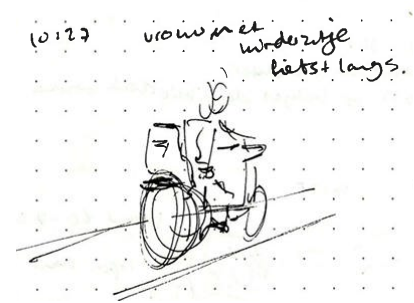 10:27 vrouw met
kinderzitje
fietst langs.